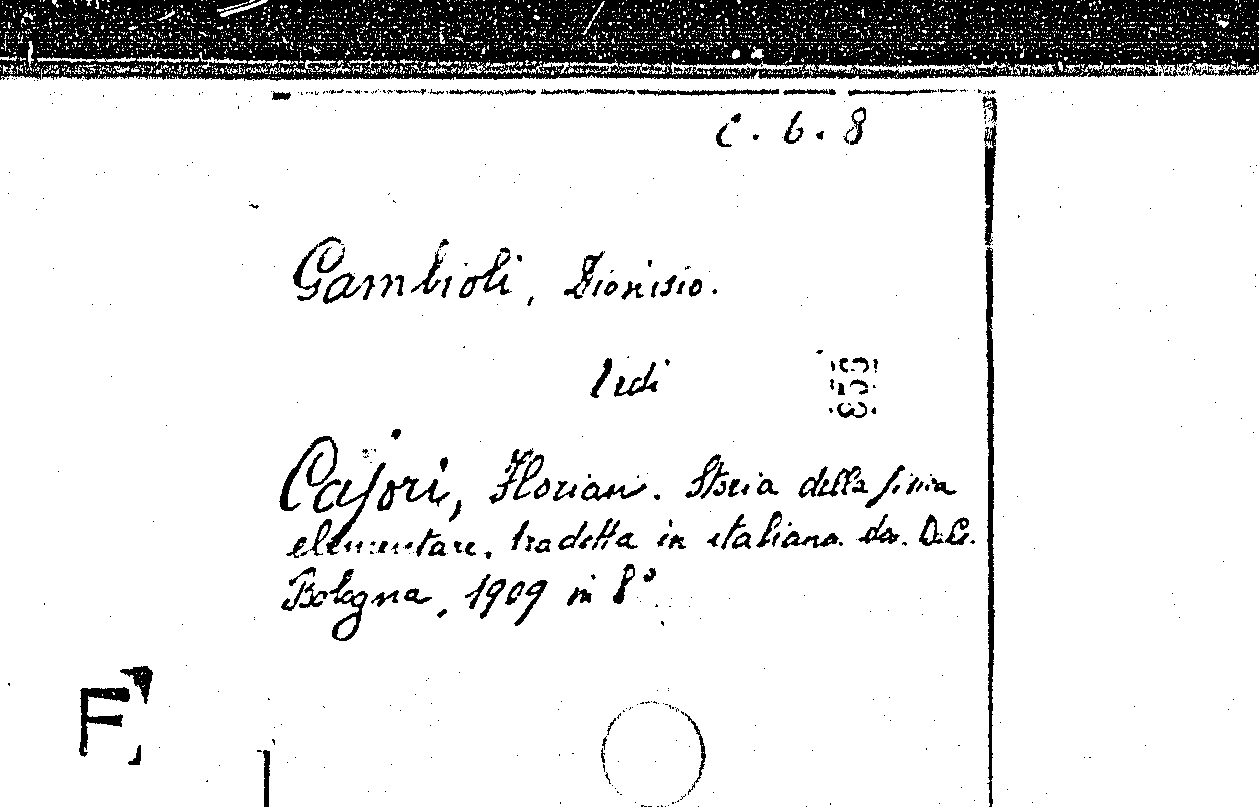 C. 6. 8
Gambioli, Dionisio.
Vedi
Cajori, Florian. Storia della fisica
elementare, tradotta in italiano da D. G.
Bologna, 1909 in 8°
F